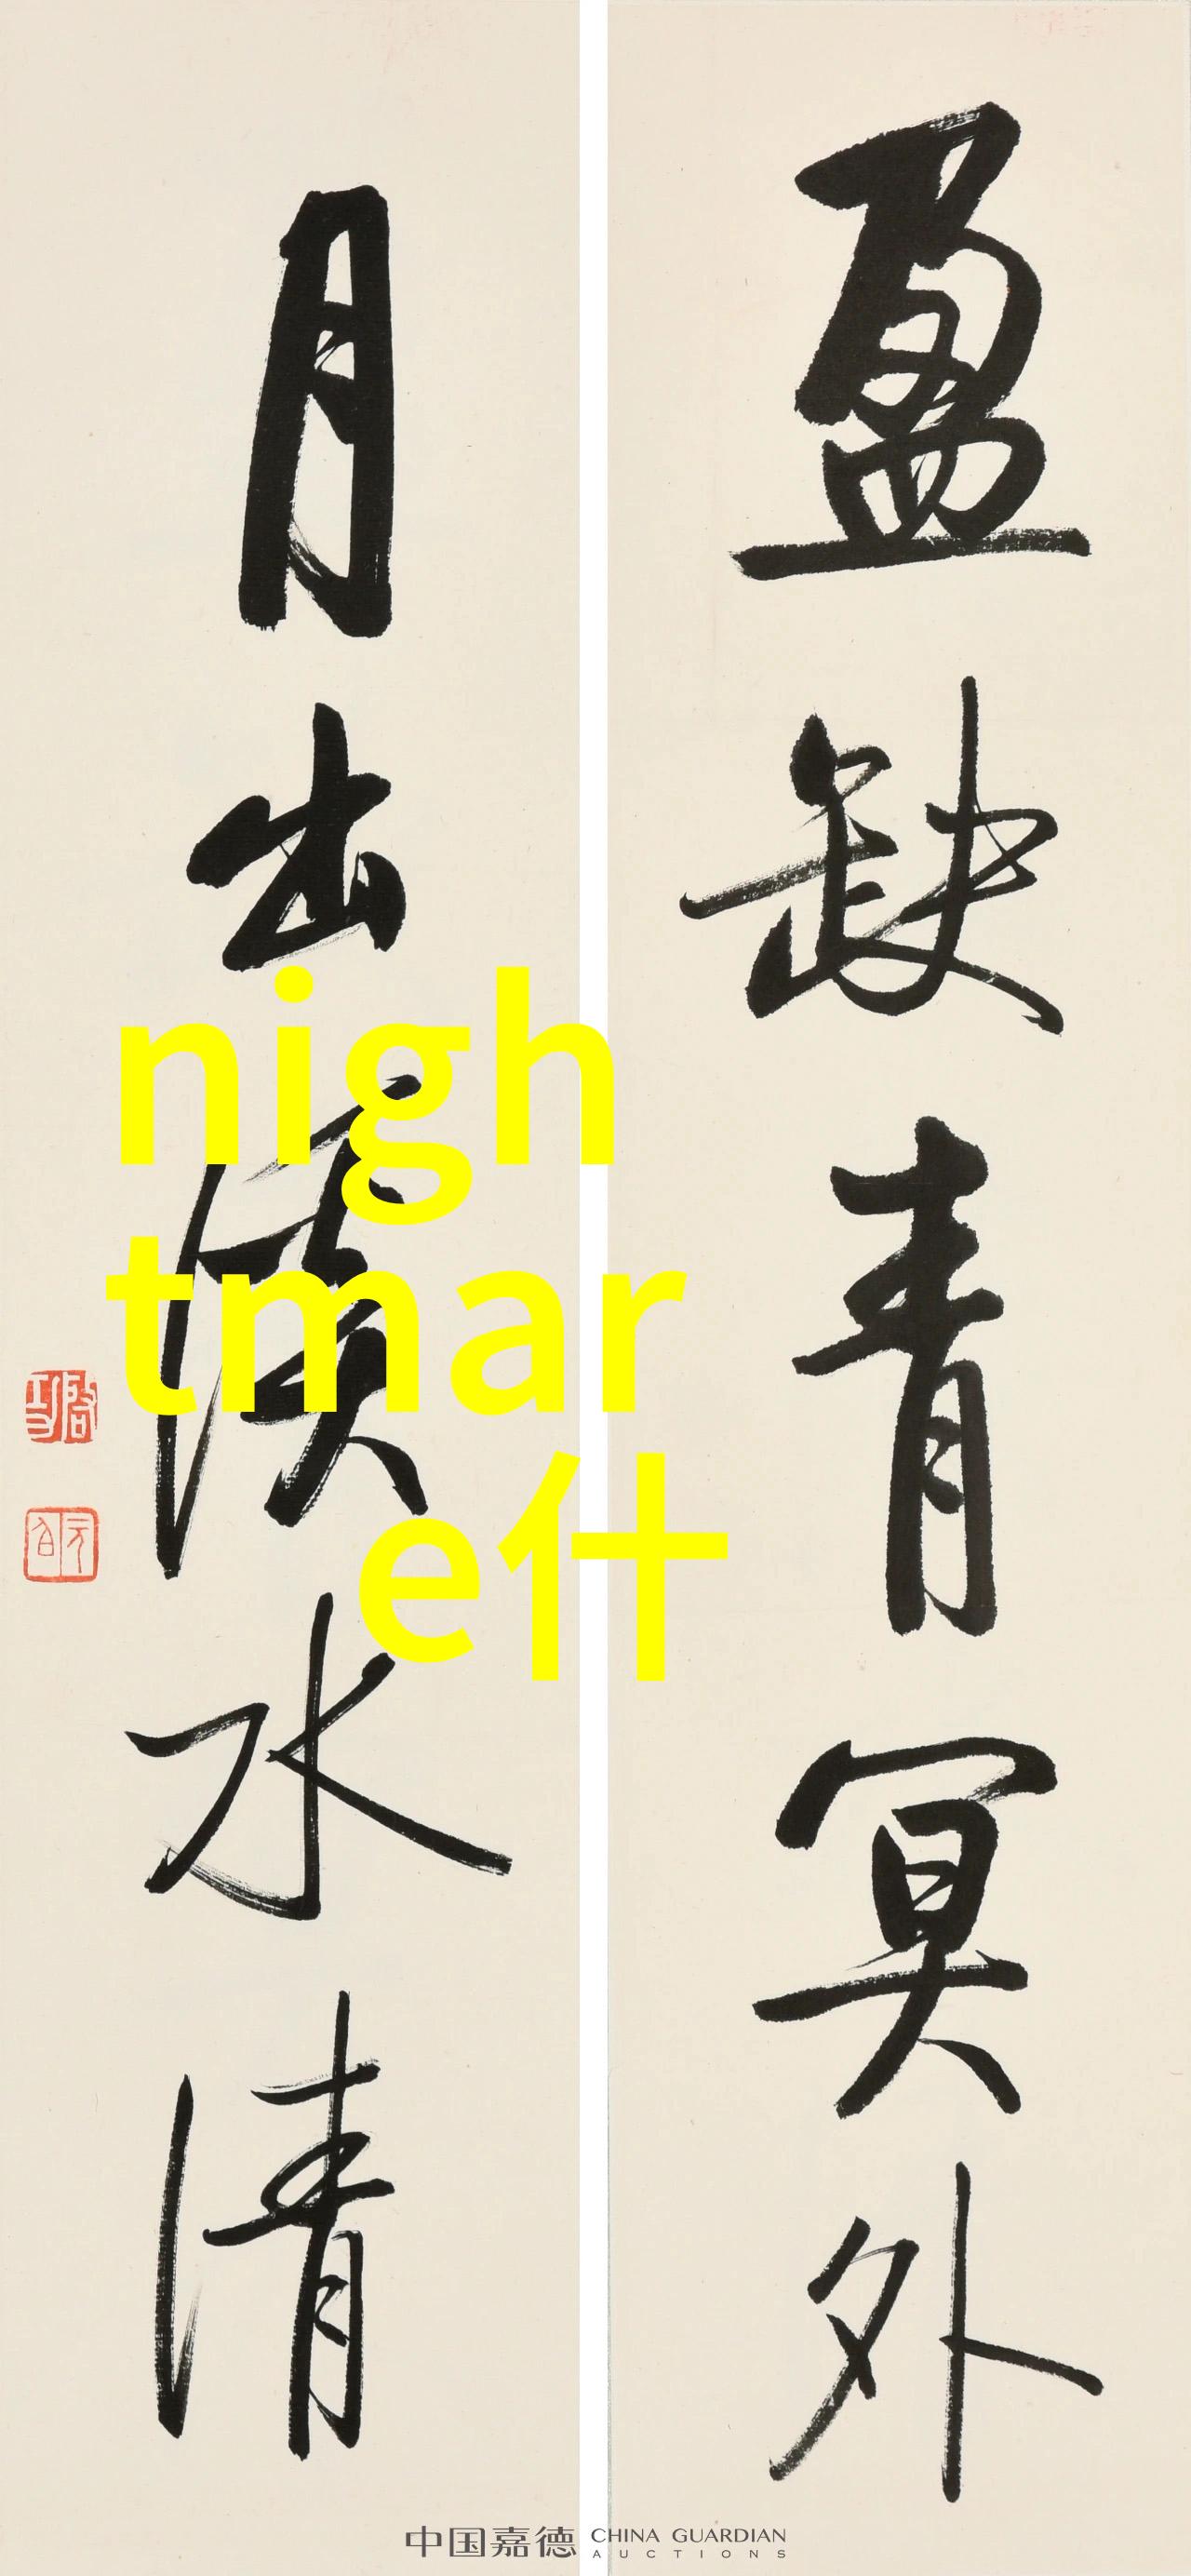 盈缺青冥外
月出溪水清
啓功
元白
nigh
tmar
e什
中国嘉德 CHINA GUARDIAN
AUCTIONS